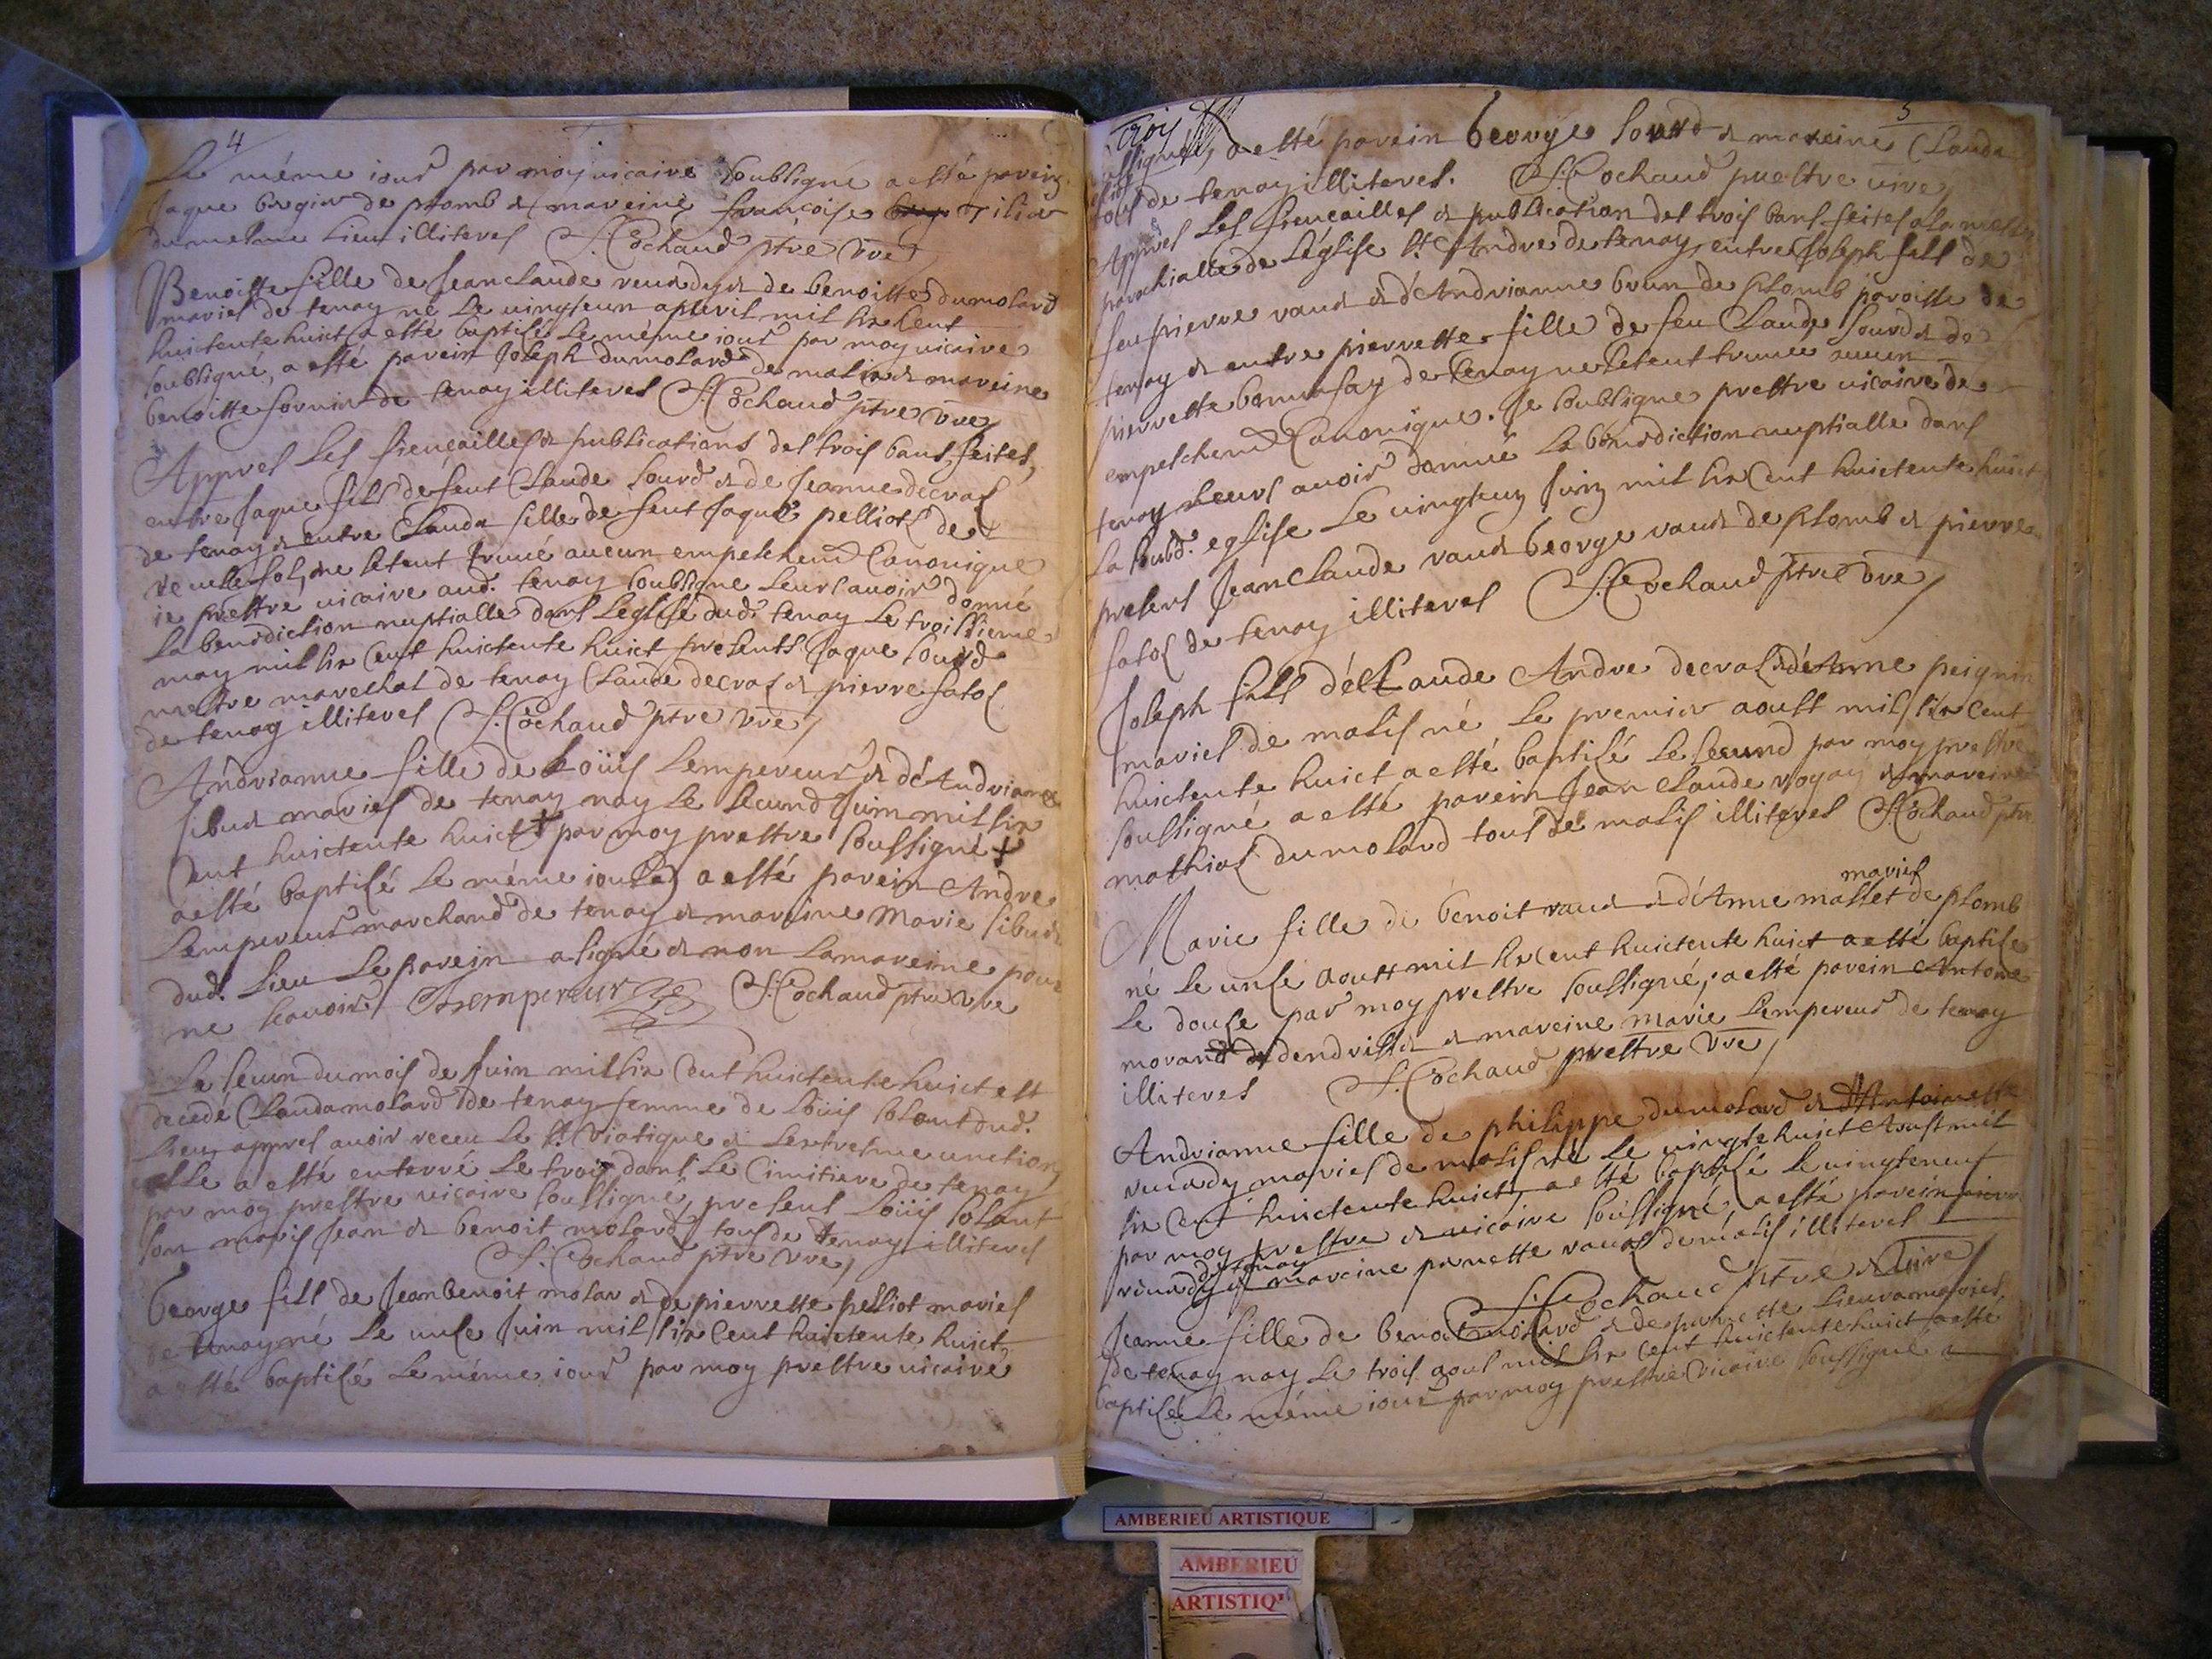 4
Le méme iour par moy vicaire soubsigne a esté parein
Jaque de plomb & mareine francoise
du mesme lieu illiteres S. Cochaud ptre vre
Benoitte fille de Jean claude reuady & de benoitte dumolard
mariés de tenay né le vingteun apvril mil six cent
huictente huict a esté baptisée le méme iour par moy vicaire
soubsigné, a esté parein Joseph dumolard de malix & mareine
benoitte fornier de tenay illiteres S. Cochaud ptre vre
Appres les fiençailles & publications des trois bans feites,
entre Jaque fils de feut Claude sourd & de Jeanne decraz
de tenay & entre Clauda fille de feut Jaque pelliot de
ne setent truué aucun empeschemt Canonique
ie prestre vicaire aud. tenay soubsigne leurs auoir donné
la benediction nuptialle dans leglise dud. tenay le troissieme
may mil six cent huictente huict presents Jaque sourd
mestre mareschal de tenay Claude decraz & pierre fatoz
de tenay illiteres S. Cochaud ptre vre
Andrianne fille de Loüis Lempereur & d'Andrianne
sibuet mariés de tenay nay le second Juin mil six
Cent huictente huict + par moy prestre soussigné +
a esté baptisé le méme iour a esté parein Andre
Lempereur marchand de tenay & mareine Marie sibuet
dud. lieu le parein a signé & non la mareine pour
ne scauoir Lempereur S. Cochaud ptre vre
Le seun du mois de Juin mil six Cent huictente huict est
decedé Clauda molard de tenay femme de Loüis solant dud.
lieu, appres auoir receu le St. Viatique & lextreme unction,
elle a esté enterré le trois dans le Cimitiere de tenay
par moy prestre vicaire soussigné, present Loüis solant
son maris Jean & benoit molard tous de tenay illiteres
S. Cochaud ptre vre
George fils de Jean benoit molar & de pierrette pelliot mariés
de tenay né le unse Juin mil six cent huictente huict,
a esté baptisé le méme iour par moy prestre vicaire
trois
5
soussigné, a esté parein George sourd & mareine Clauda
tous de tenay illiteres. S. Cochaud prestre vire
Appres les fiençailles & publication des trois bans feites a la messe
parochialle de l'église St. Andre de tenay, entre Joseph fils de
feu pierre vaud & d'Andrianne brun de plomb paroisse de
tenay & entre pierrette fille de feu Claude sourd & de
pierrette bonnefay de tenay ne setent truuee aucun
empeschemt Canonique. Je soubsigne prestre vicaire de
tenay leurs auoir donnué la benediction nuptialle dans
la susd. eglise le vingteun Juin mil six Cent huictente huict
presens Jean Claude vaud George vaud de plomb & pierre
fatoz de tenay illiteres S. Cochaud ptre vre
Joseph fils de Claude Andre decraz & d'Anne peignin
mariés de malis né le premier aoust mil six Cent
huictente huict a esté baptisé le second par moy prestre
soussigné a esté parein Jean Claude & mareine
mathiaz dumolard tous de malis illiteres S. Cochaud ptre
mariés
Marie fille de benoit vaud & d'Anne mallet de plomb
né le unse aoust mil six cent huictente huict a esté baptisée
le douse par moy prestre soussigné, a esté parein Antoine
morand & mareine marie Lempereur de tenay
illiteres S. Cochaud prestre vre
Andrianne fille de philippe dumolard & d'Antoinette
reuady mariés de malis né le vingte huict Aoust mil
six Cent huictente huict, a esté baptisé le vingteneuf
par moy prestre & vicaire soussigné, a esté parein pierre
de tenay
reuady & mareine pernette vaud de malis illiteres
S. Cochaud ptre & vire
Jeanne fille de benoit molard & de pernette mariés
de tenay nay le trois aout mil six cent huictente huict a esté
baptisé le méme iour par moy prestre vicaire soussigné a
AMBERIEU ARTISTIQUE
AMBERIEU
ARTISTIQ